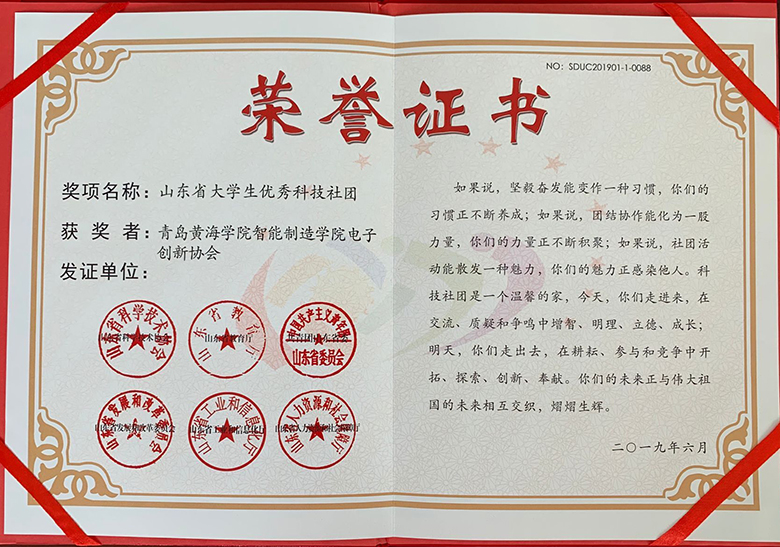 NO: SDUC201901-1-0088
荣誉证书
奖项名称：山东省大学生优秀科技社团
获奖者：青岛黄海学院智能制造学院电子
创新协会
发证单位：
山东省科学技术协会
山东省教育厅
中国共产主义青年团
山东省委员会
山东省教育厅
共青团山东省委
山东省发展和改革委员会
山东省工业和信息化厅
山东省人力资源和社会保障厅
山东省发展和改革委员会
山东省工业和信息化厅
山东省人力资源和社会保障厅
如果说，坚毅奋发能变作一种习惯，你们的
习惯正不断养成；如果说，团结协作能化为一股
力量，你们的力量正不断积聚；如果说，社团活
动能散发一种魅力，你们的魅力正感染他人。科
技社团是一个温馨的家，今天，你们走进来，在
交流、质疑和争鸣中增智、明理、立德、成长；
明天，你们走出去，在耕耘、参与和竞争中开
拓、探索、创新、奉献。你们的未来正与伟大祖
国的未来相互交织，熠熠生辉。
二〇一九年六月